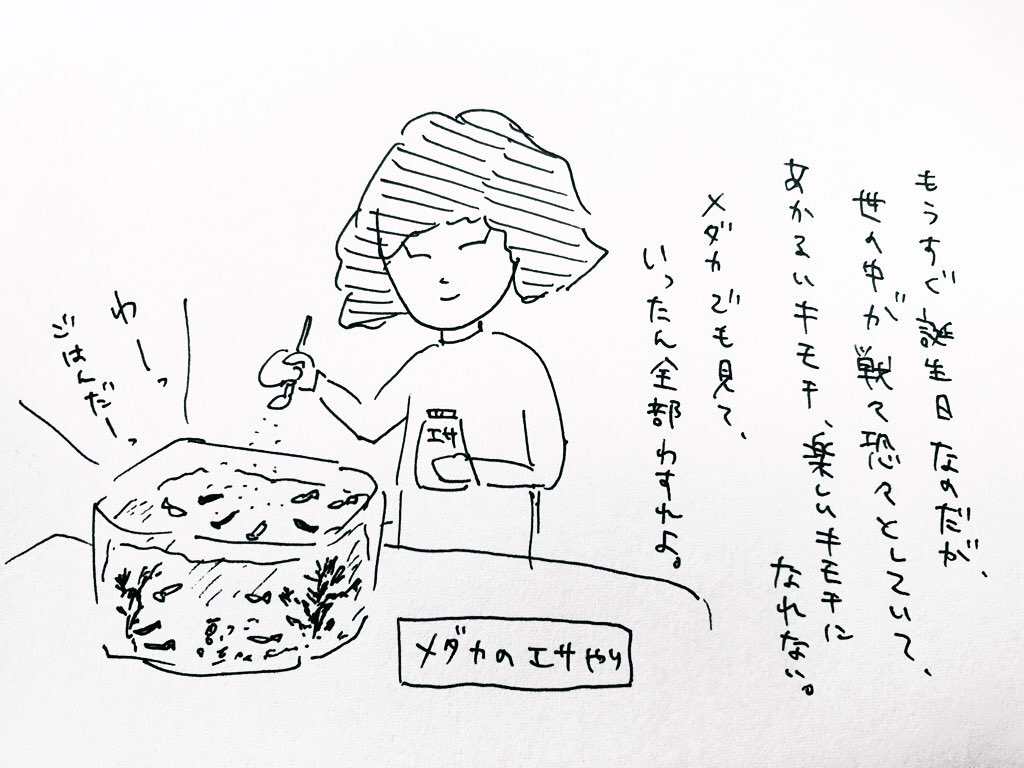 もうすぐ誕生日なのだが、
世の中が戦々恐々としていて、
あかるいキモチ、楽しいキモチに
なれない。
メダカでも見て、
いったん全部わすれよ。
わーっ
ごはんだーっ
エサ
メダカのエサやり